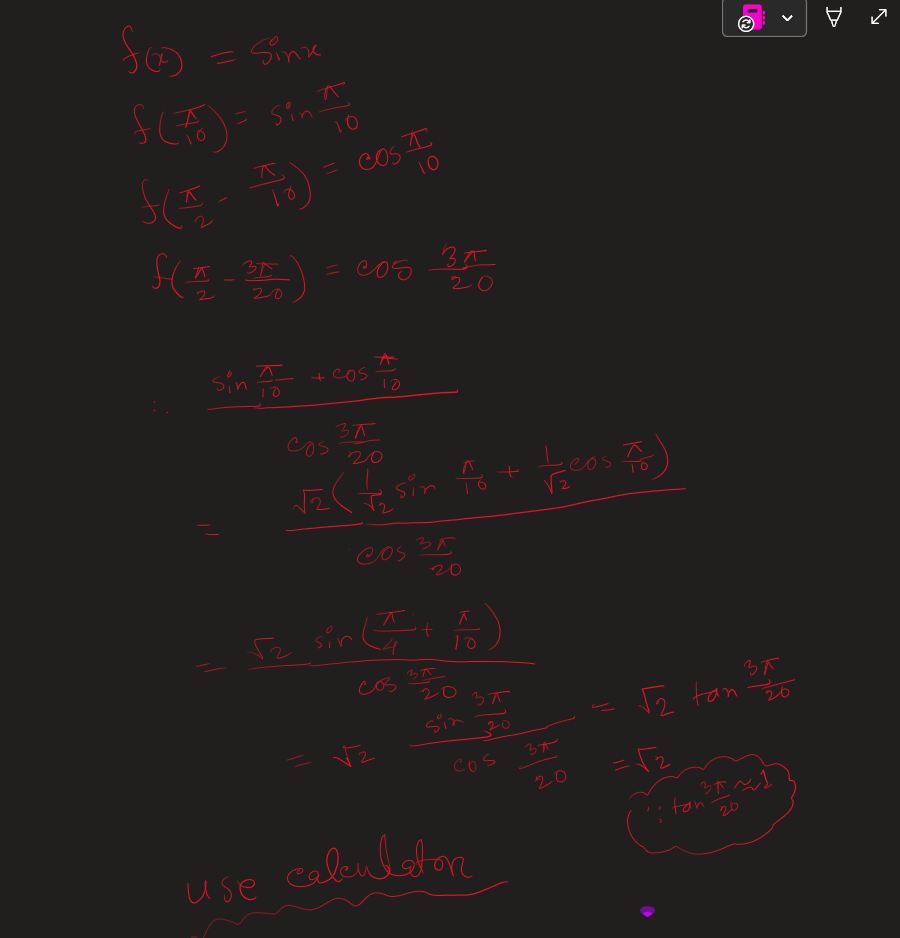 f(x) = sinx
f(π/10) = sin π/10
f(π/2 - π/10) = cos π/10
f(π/2 - 3π/20) = cos 3π/20
∴ (sin π/10 + cos π/10) / (cos 3π/20)
= √2 (1/√2 sin π/10 + 1/√2 cos π/10) / (cos 3π/20)
= √2 sin (π/4 + π/10) / (cos 3π/20)
= √2 (sin 3π/20) / (cos 3π/20) = √2 tan 3π/20
= √2
∵ tan 3π/20 ≈ 1
use calculator